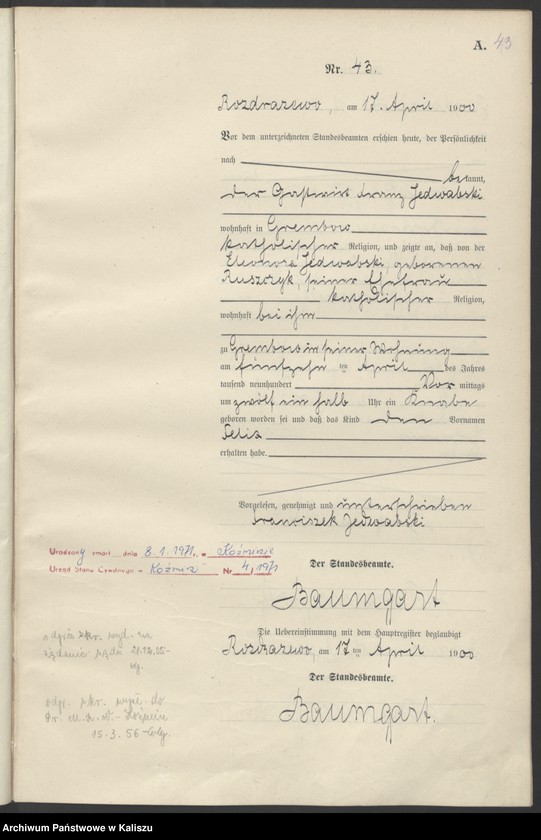 A. 43
Nr. 43.
Rozdrazewo, am 17. April 1900
Vor dem unterzeichneten Standesbeamten erschien heute, der Persönlichkeit
nach
bekannt,
der Gastwirt Franz Jedwabski
wohnhaft in Grembow
katholischer Religion, und zeigte an, daß von der
Eleonore Jedwabski, geborenen
Ruszczyk, seiner Ehefrau
katholischer Religion,
wohnhaft bei ihm
zu Grembow in seiner Wohnung
am fünfzehn ten April des Jahres
tausend neunhundert Vor mittags
um zwölf ein halb Uhr ein Knabe
geboren worden sei und daß das Kind den Vornamen
Felix
erhalten habe.
Vorgelesen, genehmigt und unterschrieben
Franciszek Jedwabski
Urodzony zmarł dnia 8.1.1971 r. w Koźminie
Urząd Stanu Cywilnego w Koźmin Nr 4/1971
Der Standesbeamte.
Baumgart
Die Uebereinstimmung mit dem Hauptregister beglaubigt
Rozdrazewo, am 17 ten April 1900
Der Standesbeamte.
Baumgart.
odpis skr. wyd. na
żądanie
odp. skr. wyd. do
15.3.56
Archiwum Państwowe w Kaliszu